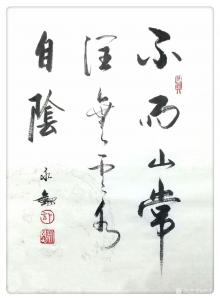 不雨山常
潤無雲水
自陰
永